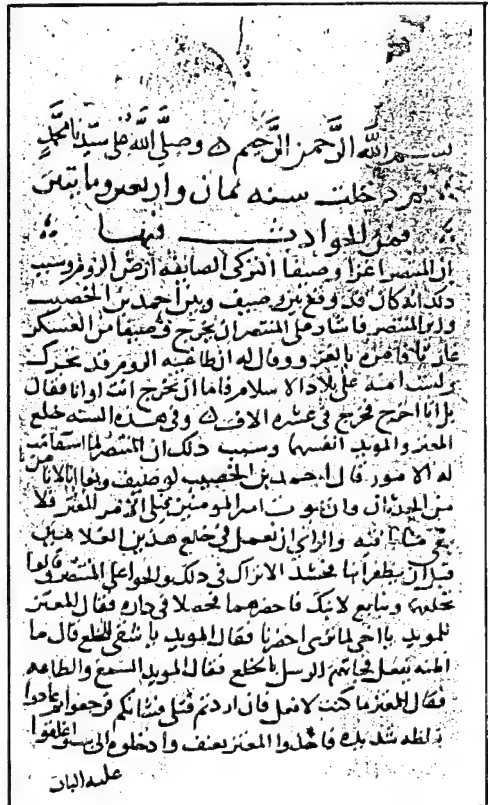 بسم الله الرحمن الرحيم وصلى الله على سيدنا محمد
ثم دخلت سنه ثمان واربعين وما يتين
فمن الحوادث فيها
ان المنتصر اغزا وصيفا التركى الصائفه ارض الروم وسبب
ذلك انه كان قد وقع بين وصيف وبين احمد بن الخصيب
وزير المنتصر فاشار على المنتصر ان يخرج وصيفا من العسكر
غازيا فامره بالغزو وقال له ان طاغيه الروم قد تحرك
ولست امنه على بلاد الاسلام فاما ان تخرج انت او انا فقال
بل انا اخرج فخرج فى عشره الاف وفى هذه السنه خلع
المعتز والمويد انفسهما وسبب ذلك ان المنتصر لما استقامت
له الامور قال احمد بن الخصيب لوصيف وبغا انا لا نامن
من الحدثان وان يموت امير المومنين فيلى الامر المعتز فلا
يبقى منا باقيه والراى ان نعمل فى خلع هذين الغلامين
قبل ان يظفرا بنا فجد الاتراك فى ذلك والحوا على المنتصر وقالوا
نخلعهما ونبايع لابنك فاحضرهما فجعلا فى دار فقال المعتز
للمويد يا اخى لم ترى احضرنا فقال المويد يا شقى للخلع قال ما
اظنه يفعل فجاتهم الرسل بالخلع فقال المويد السمع والطاعه
فقال المعتز ما كنت لافعل فان اردتم قتلى فشانكم فرجعوا ثم عادوا
بغلظه شديده فاخذوا المعتز بعنف وادخلوه الى بيت واغلقوا
عليه الباب